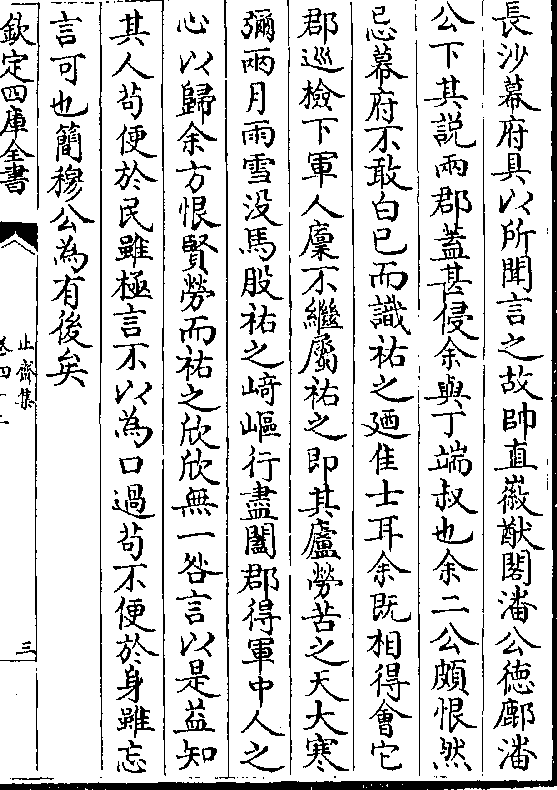 長沙幕府具以所聞言之故帥直㣲猷閣潘公徳鄜潘
公下其説兩郡蓋甚侵余與丁端叔也余二公頗恨然
忌幕府不敢白已而識祐之廼佳士耳余既相得會它
郡巡檢下軍人廩不繼屬祐之即其廬勞苦之天大寒
彌兩月雨雪没馬股祐之﨑嶇行盡闔郡得軍中人之
心以歸余方恨賢勞而祐之欣欣無一咎言以是益知
其人苟便於民雖極言不以為口過苟不便於身雖忘
言可也簡穆公為有後矣
欽定四庫全書
止齋集
三